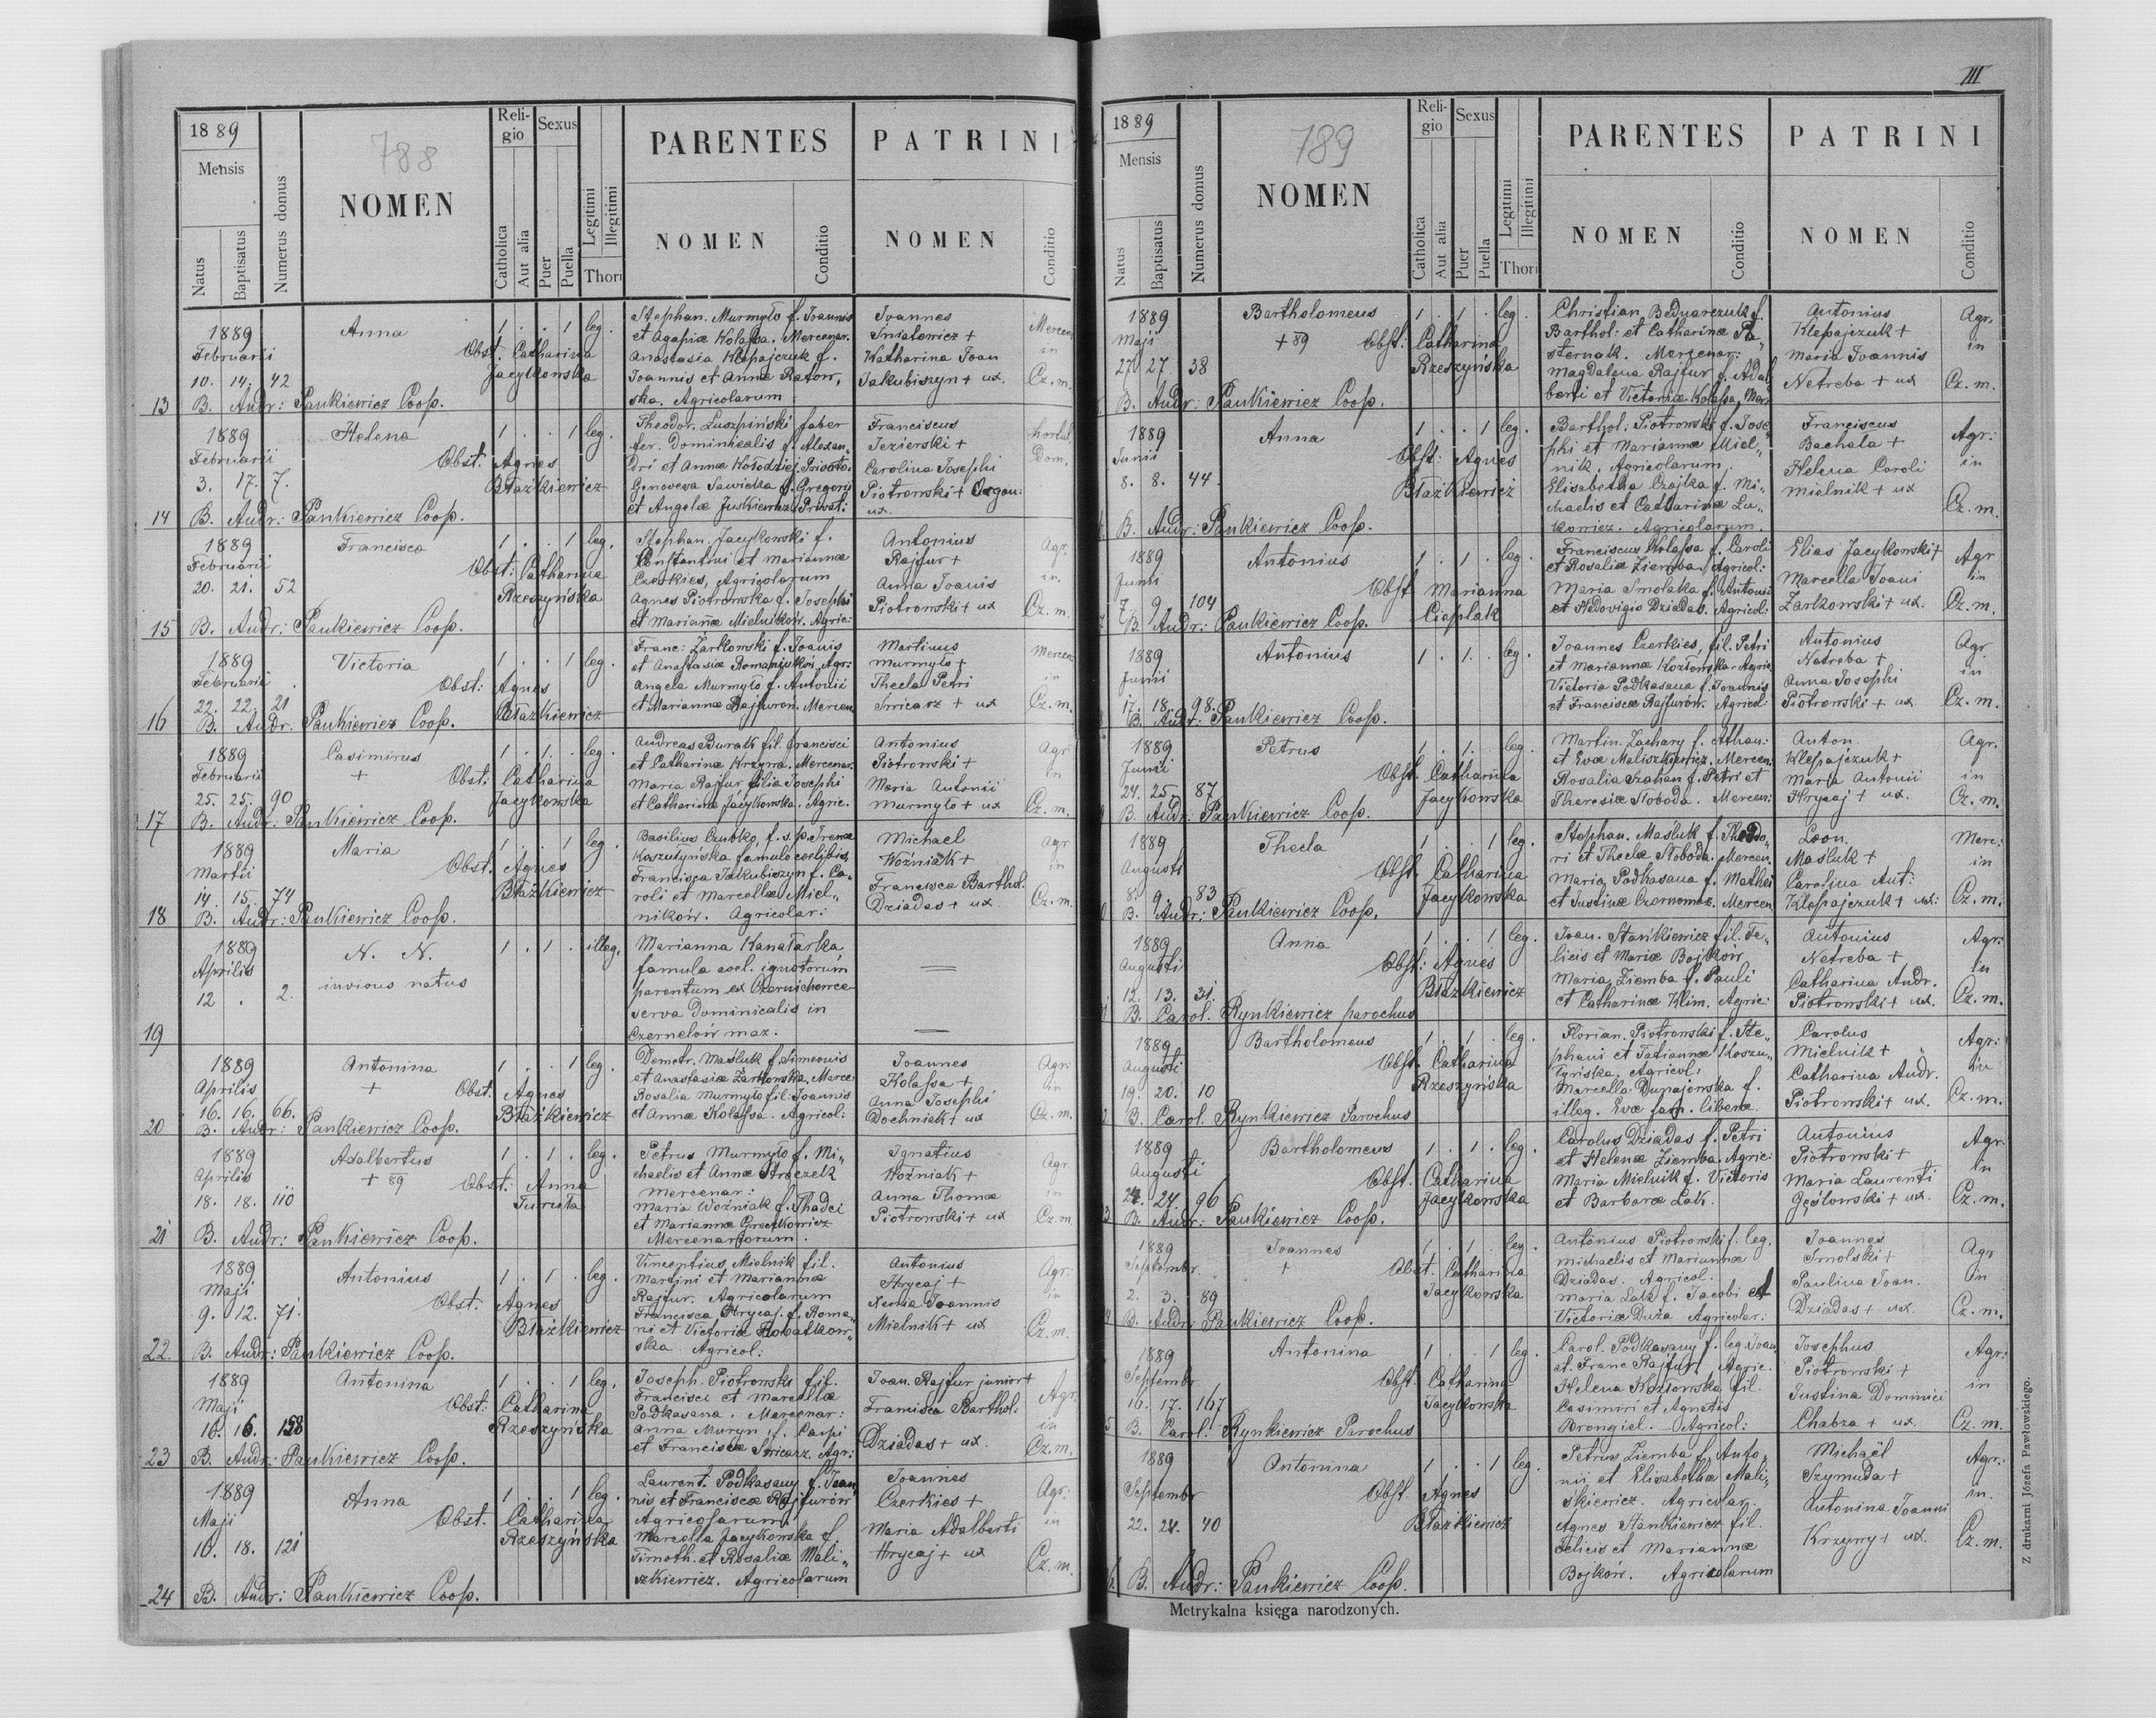 788
1889
Mensis
Natus
Baptisatus
Numerus domus
NOMEN
Reli-
gio
Catholica
Aut alia
Sexus
Puer
Puella
Legitimi
Illegitimi
Thori
PARENTES
NOMEN
Conditio
PATRINI
NOMEN
Conditio
13
1889
Februarii
10. 14. 42
Anna
Obst. Catharina
Jacykowska
1 . . 1 leg.
Stephan. Murmyło f. Joannis
et Agapiæ Kolassa. Mercenar.
Anastasia Klepajczuk f.
Joannis et Annæ
ska. Agricolarum
Joannes
Śniatowicz +
Katharina Joan
Jakubiszyn + ux.
Mercen
in
Cz. m.
B. Andr: Pankiewicz Coop.
14
1889
Februarii
3. 17. 7.
Helena
Obst. Agnes
Błażkiewicz
1 . . 1 leg.
Theodor. Luszpiński faber
fer. Dominicalis f. Alexan„
dri et Annæ Kołodziej. Privato.
Genovefa Sawicka f. Gregorii
et Angelæ Juskiewicz Privat:
Franciscus
Jezierski +
Carolina Josephi
Piotrowski + Organ:
ux.
hortul.
Dom.
B. Andr: Pankiewicz Coop.
15
1889
Februarii
20. 21. 52
Francisca
Obst: Catharina
Rzeszyńska
1 . . 1 leg.
Stephan. Jacykowski f.
Constantini et Mariannæ
Czerkies, Agricolarum
Agnes Piotrowska f. Josephi
et Mariannæ Mielników. Agric:
Antonius
Rajfur +
Anna Joanis
Piotrowski + ux
Agr.
in.
Cz. m.
B. Andr: Pankiewicz Coop.
16
1889
Februarii
22. 22. 21
Victoria
Obst: Agnes
Błażkiewicz
1 . . 1 leg.
Franc: Zarkowski f. Joanis
et Anastasiæ Romaniuków, Agr:
Angela Murmyło f. Antonii
et Mariannæ Rajfurów. Mercen
Martinus
Murmyło +
Thecla Petri
Śnicarz + ux
Mercen:
in
Cz. m.
B. Andr. Pankiewicz Coop.
17
1889
Februarii
25. 25. 90
Casimirus
+
Obst: Catharina
Jacykowska
1 . 1 . leg.
Andreas Burak fil. Francisci
et Catharinæ Krzywa. Mercenar.
Maria Rajfur filia Josephi
et Catharinæ Jacykowska. Agric.
Antonius
Piotrowski +
Maria Antonii
Murmyło + ux
Agr
in
Cz. m.
B. Andr. Pankiewicz Coop.
18
1889
Martii
14. 15. 74
Maria
Obst. Agnes
Błażkiewicz
1 . . 1 leg.
Basilius Czubko, f. s. p. Irenæ
Koszutyńska famulo coelibis,
Francisca Jakubiszyn f. Ca„
roli et Marcellæ Miel„
ników. Agricolar:
Michael
Woźniak +
Francisca Barthol.
Dziadas + ux
agr
in
Cz. m.
B. Andr: Pankiewicz Coop.
19
1889
Aprilis
12 . 2.
N. N.
invious natus
1 . 1 . illeg.
Marianna Kanafarka
famula coel. ignotorum
parentum ex Czernichowce
serva Dominicalis in
Czernelów maz.
20
1889
Aprilis
16. 16. 66.
Antonina
+
Obst. Agnes
Błażkiewicz
1 . . 1 leg.
Demetr. Masluk f. Simeonis
et Anastasiæ Zarkowska. Merce:
Rosalia Murmyło fil: Joannis
et Annæ Kolassa. Agricol:
Joannes
Kolassa +
Anna Josephi
Dochniak + ux
Agr
in
Cz. m.
B. Andr: Pankiewicz Coop.
21
1889
Aprilis
18. 18. 110
Adalbertus
+ 89
Obst: Anna
Turuta
1 . 1 . leg.
Petrus Murmyło f. Mi„
chaelis et Annæ Stroczek
Mercenar:
Maria Woźniak f. Thadei
et Mariannæ
Mercenariorum.
Ignatius
Woźniak +
Anna Thomæ
Piotrowski + ux
Agr.
in
Cz. m.
B. Andr: Pankiewicz Coop.
22.
1889
Maji
9. 12. 71.
Antonius
Obst. Agnes
Błażkiewicz
1 . 1 . leg.
Vincentius Mielnik fil.
Martini et Mariannæ
Rajfur. Agricolarum
Francisca Hrycaj f. Roma„
ni et Victoriæ
ska Agricol:
Antonius
Hrycaj +
Joannis
Mielnik + ux
Agr.
in
Cz. m.
B. Andr: Pankiewicz Coop.
23
1889
Maji
16. 16. 158
Antonina
Obst. Catharina
Rzeszyńska
1 . . 1 leg.
Joseph. Piotrowski fil.
Francisci et Marcellæ
Podkasana. Mercenar:
Anna Muryn f. Carpi
et Franciscæ Śnicarz. Agr:
Joan. Rajfur junior +
Francisca Barthol:
Dziadas + ux.
Agr.
in
Cz. m.
B. Andr: Pankiewicz Coop.
24
1889
Maji
16. 18. 121
Anna
Obst. Catharina
Rzeszyńska
1 . . 1 leg.
Laurent. Podkasany f. Joan
nis et Franciscæ Rajfurów
Agricolarum
Marcella Jacykowska f.
Timoth. et Rosaliæ Mali„
szkiewicz. Agricolarum
Joannes
Czerkies +
Maria Adalberti
Hrycaj + ux
Agr:
in
Cz. m.
B. Andr: Pankiewicz Coop.
III
789
1889
Mensis
Natus
Baptisatus
Numerus domus
NOMEN
Reli-
gio
Catholica
Aut alia
Sexus
Puer
Puella
Legitimi
Illegitimi
Thori
PARENTES
NOMEN
Conditio
PATRINI
NOMEN
Conditio
1889
Maji
27 27 38
Bartholomeus
+ 89
Obst: Catharina
Rzeszyńska
1 . 1 . leg.
Christian. Bednarczuk f.
Barthol: et Catharinæ Pa„
sternak. Mercenar:
Magdalena Rajfur f. Adal
berti et Victoriæ Kolassa, Merc
Antonius
Klepajczuk +
Maria Joannis
Netreba + ux
Agr.
in
Cz. m.
B. Andr. Pankiewicz Coop.
1889
Junii
8. 8. 44.
Anna
Obst: Agnes
Błażkiewicz
1 . . 1 leg.
Barthol: Piotrowski f. Jose„
phi et Mariannæ Miel„
nik. Agricolarum.
Elisabetha Czajka f. Mi„
chaelis et Catharinæ Lu„
kowicz. Agricolarum.
Franciscus
Bachala +
Helena Caroli
Mielnik + ux
Agr:
in
Cz. m.
B. Andr: Pankiewicz Coop.
1889
Junii
7. 9. 104
Antonius
Obst Marianna
Cieplak
1 . 1 . leg.
Franciscus Kolassa f. Caroli
et Rosaliæ Ziemba. Agricol:
Maria Smolaka f. Antonii
et Hedvigis Dziadas. Agricol:
Elias Jacykowski +
Marcella Joani
Zarkowski + ux.
Agr
in
Cz. m.
B. Andr: Pankiewicz Coop.
1889
Junii
17. 18. 98.
Antonius
1 . 1 . leg.
Joannes Czerkies, fil. Petri
et Mariannæ Kozłowska. Agric
Victoria Podkasana f. Joannis
et Franciscæ Rajfurów. Agricol:
Antonius
Netreba +
Anna Josephi
Piotrowski + ux
Agr
in
Cz. m.
B. Andr: Pankiewicz Coop.
1889
Junii
24. 25. 87
Petrus
Obst. Catharina
Jacykowska
1 . 1 . leg.
Martin. Zachary f. Athan:
et Evæ Maliszkiewicz. Mercen.
Rosalia f. Petri et
Theresiæ Słoboda. Mercen:
Anton.
Klepajczuk +
Maria Antonii
Hrycaj + ux.
Agr.
in
Cz. m.
B. Andr: Pankiewicz Coop.
1889
Augusti
8. 9. 83
Thecla
Obst. Catharina
Jacykowska
1 . . 1 leg.
Stephan. Masluk f. Theodo„
ri et Theclæ Słoboda. Mercen.
Maria Podkasana f. Mathei
et Justinæ Czornomaz. Mercen
Leon.
Masluk +
Carolina Ant:
Klepajczuk + ux:
Merc:
in
Cz. m.
B. Andr: Pankiewicz Coop.
1889
Augusti
12. 13. 31.
Anna
Obst: Agnes
Błażkiewicz
1 . . 1 leg.
Joan. Stańkiewicz fil. Fe„
licis et Mariæ Bojków
Maria Ziemba f. Pauli
et Catharinæ Klim. Agric:
Antonius
Netreba +
Catharina Andr.
Piotrowski + ux.
Agr:
in
Cz. m.
B. Carol. Rynkiewicz parochus
1889
Augusti
19. 20. 10
Bartholomeus
Obst. Catharina
Rzeszyńska
1 . 1 . leg.
Florian. Piotrowski f. Ste„
phani et Tatiannæ Koszu„
tyńska. Agricol:
Marcella Dunajowska f.
illeg. Evæ fam. liberæ
Carolus
Mielnik +
Catharina Andr.
Piotrowski + ux.
Agr:
in
Cz. m.
B. Carol. Rynkiewicz Parochus
1889
Augusti
24. 24. 96
Bartholomeus
Obst. Catharina
Jacykowska
1 . 1 . leg.
Carolus Dziadas f. Petri
et Helenæ Ziemba. Agric:
Maria Mielnik f. Victoris
et Barbaræ Lak.
Antonius
Piotrowski +
Maria Laurenti
Gęsłowski + ux.
Agr.
in
Cz. m.
B. Andr: Pankiewicz Coop.
1889
Septembr.
2. 3. 89
Joannes
+
Obst. Catharina
Jacykowska
1 . 1 . leg.
Antonius Piotrowski f. leg.
Michaelis et Mariannæ
Dziadas. Agricol.
Maria Lak f. Jacobi et
Victoriæ Duża. Agricolar:
Joannes
Smolski +
Paulina Joan.
Dziadas + ux.
Agr
in
Cz. m.
B. Andr. Pankiewicz Coop.
1889
Septembr
16. 17. 167
Antonina
Obst. Catharina
Jacykowska
1 . . 1 leg.
Carol. Podkasany f. leg. Joan
et. Franc Rajfur, Agric.
Helena Kozłowska fil.
Casimiri et Agnetis
Brengiel. Agricol:
Josephus
Piotrowski +
Justina Dominici
Chabza + ux.
Agr:
in
Cz. m.
B. Carol. Rynkiewicz Parochus
1889
Septembr
22. 24. 40
Antonina
Obst Agnes
Błażkiewicz
1 . . 1 leg.
Petrus Ziemba f. Anto„
nii et Elisabethæ Mali„
skiewicz. Agricolar.
Agnes Stankiewicz fil.
Felicis et Mariannæ
Bojków. Agricolarum
Michaël
Szymuda +
Antonina Joanni
Krzywy + ux.
Agr:
in.
Cz. m.
B. Andr: Pankiewicz Coop.
Metrykalna księga narodzonych.
Z drukarni Józefa Pawłowskiego.